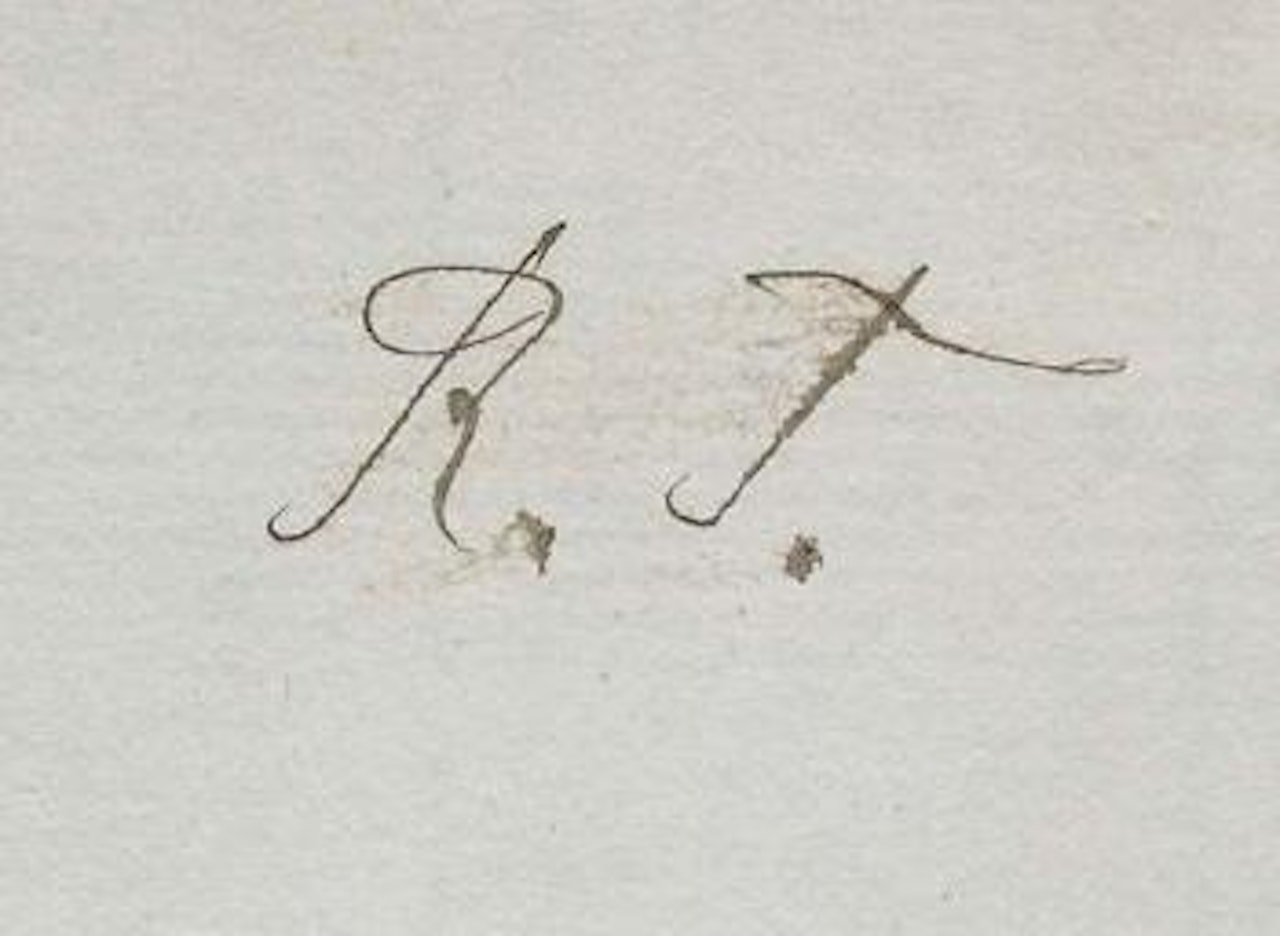 R. T.